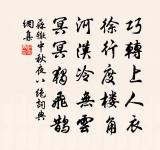 巧轉上人衣
徐行度樓角
河漢冷無雲
冥冥獨飛鵲
蘇轍中秋夜八絕詞典
網集